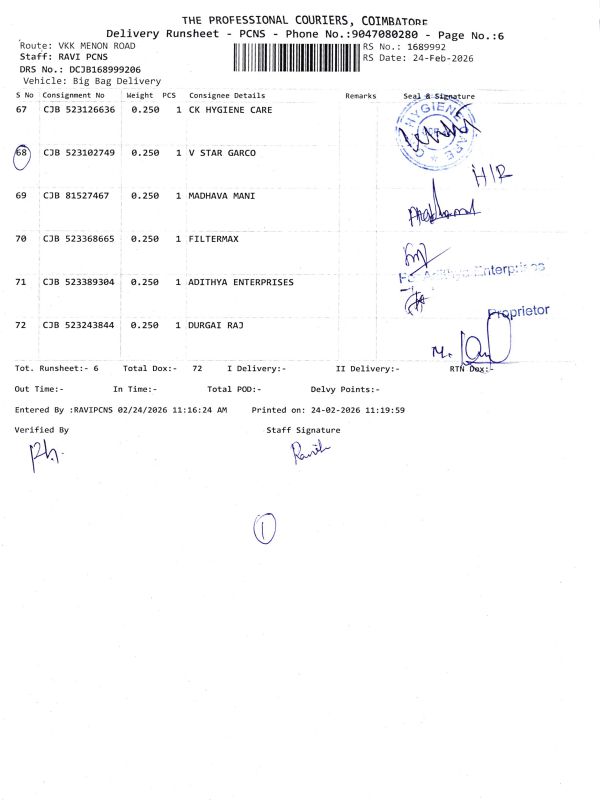 THE PROFESSIONAL COURIERS, COIMBATORE
Delivery Runsheet - PCNS - Phone No.:9047080280 - Page No.:6
Route: VKK MENON ROAD
RS No.: 1689992
Staff: RAVI PCNS
RS Date: 24-Feb-2026
DRS No.: DCJB168999206
Vehicle: Big Bag Delivery
S No Consignment No Weight PCS Consignee Details Remarks Seal & Signature
67 CJB 523126636 0.250 1 CK HYGIENE CARE
HYGIENE
68 CJB 523102749 0.250 1 V STAR GARCO
H/R
69 CJB 81527467 0.250 1 MADHAVA MANI
70 CJB 523368665 0.250 1 FILTERMAX
Adithya Enterprises
71 CJB 523389304 0.250 1 ADITHYA ENTERPRISES
Proprietor
72 CJB 523243844 0.250 1 DURGAI RAJ
M.
Tot. Runsheet:- 6 Total Dox:- 72 I Delivery:- II Delivery:- RTN Dox:-
Out Time:- In Time:- Total POD:- Delvy Points:-
Entered By :RAVIPCNS 02/24/2026 11:16:24 AM Printed on: 24-02-2026 11:19:59
Verified By Staff Signature
1